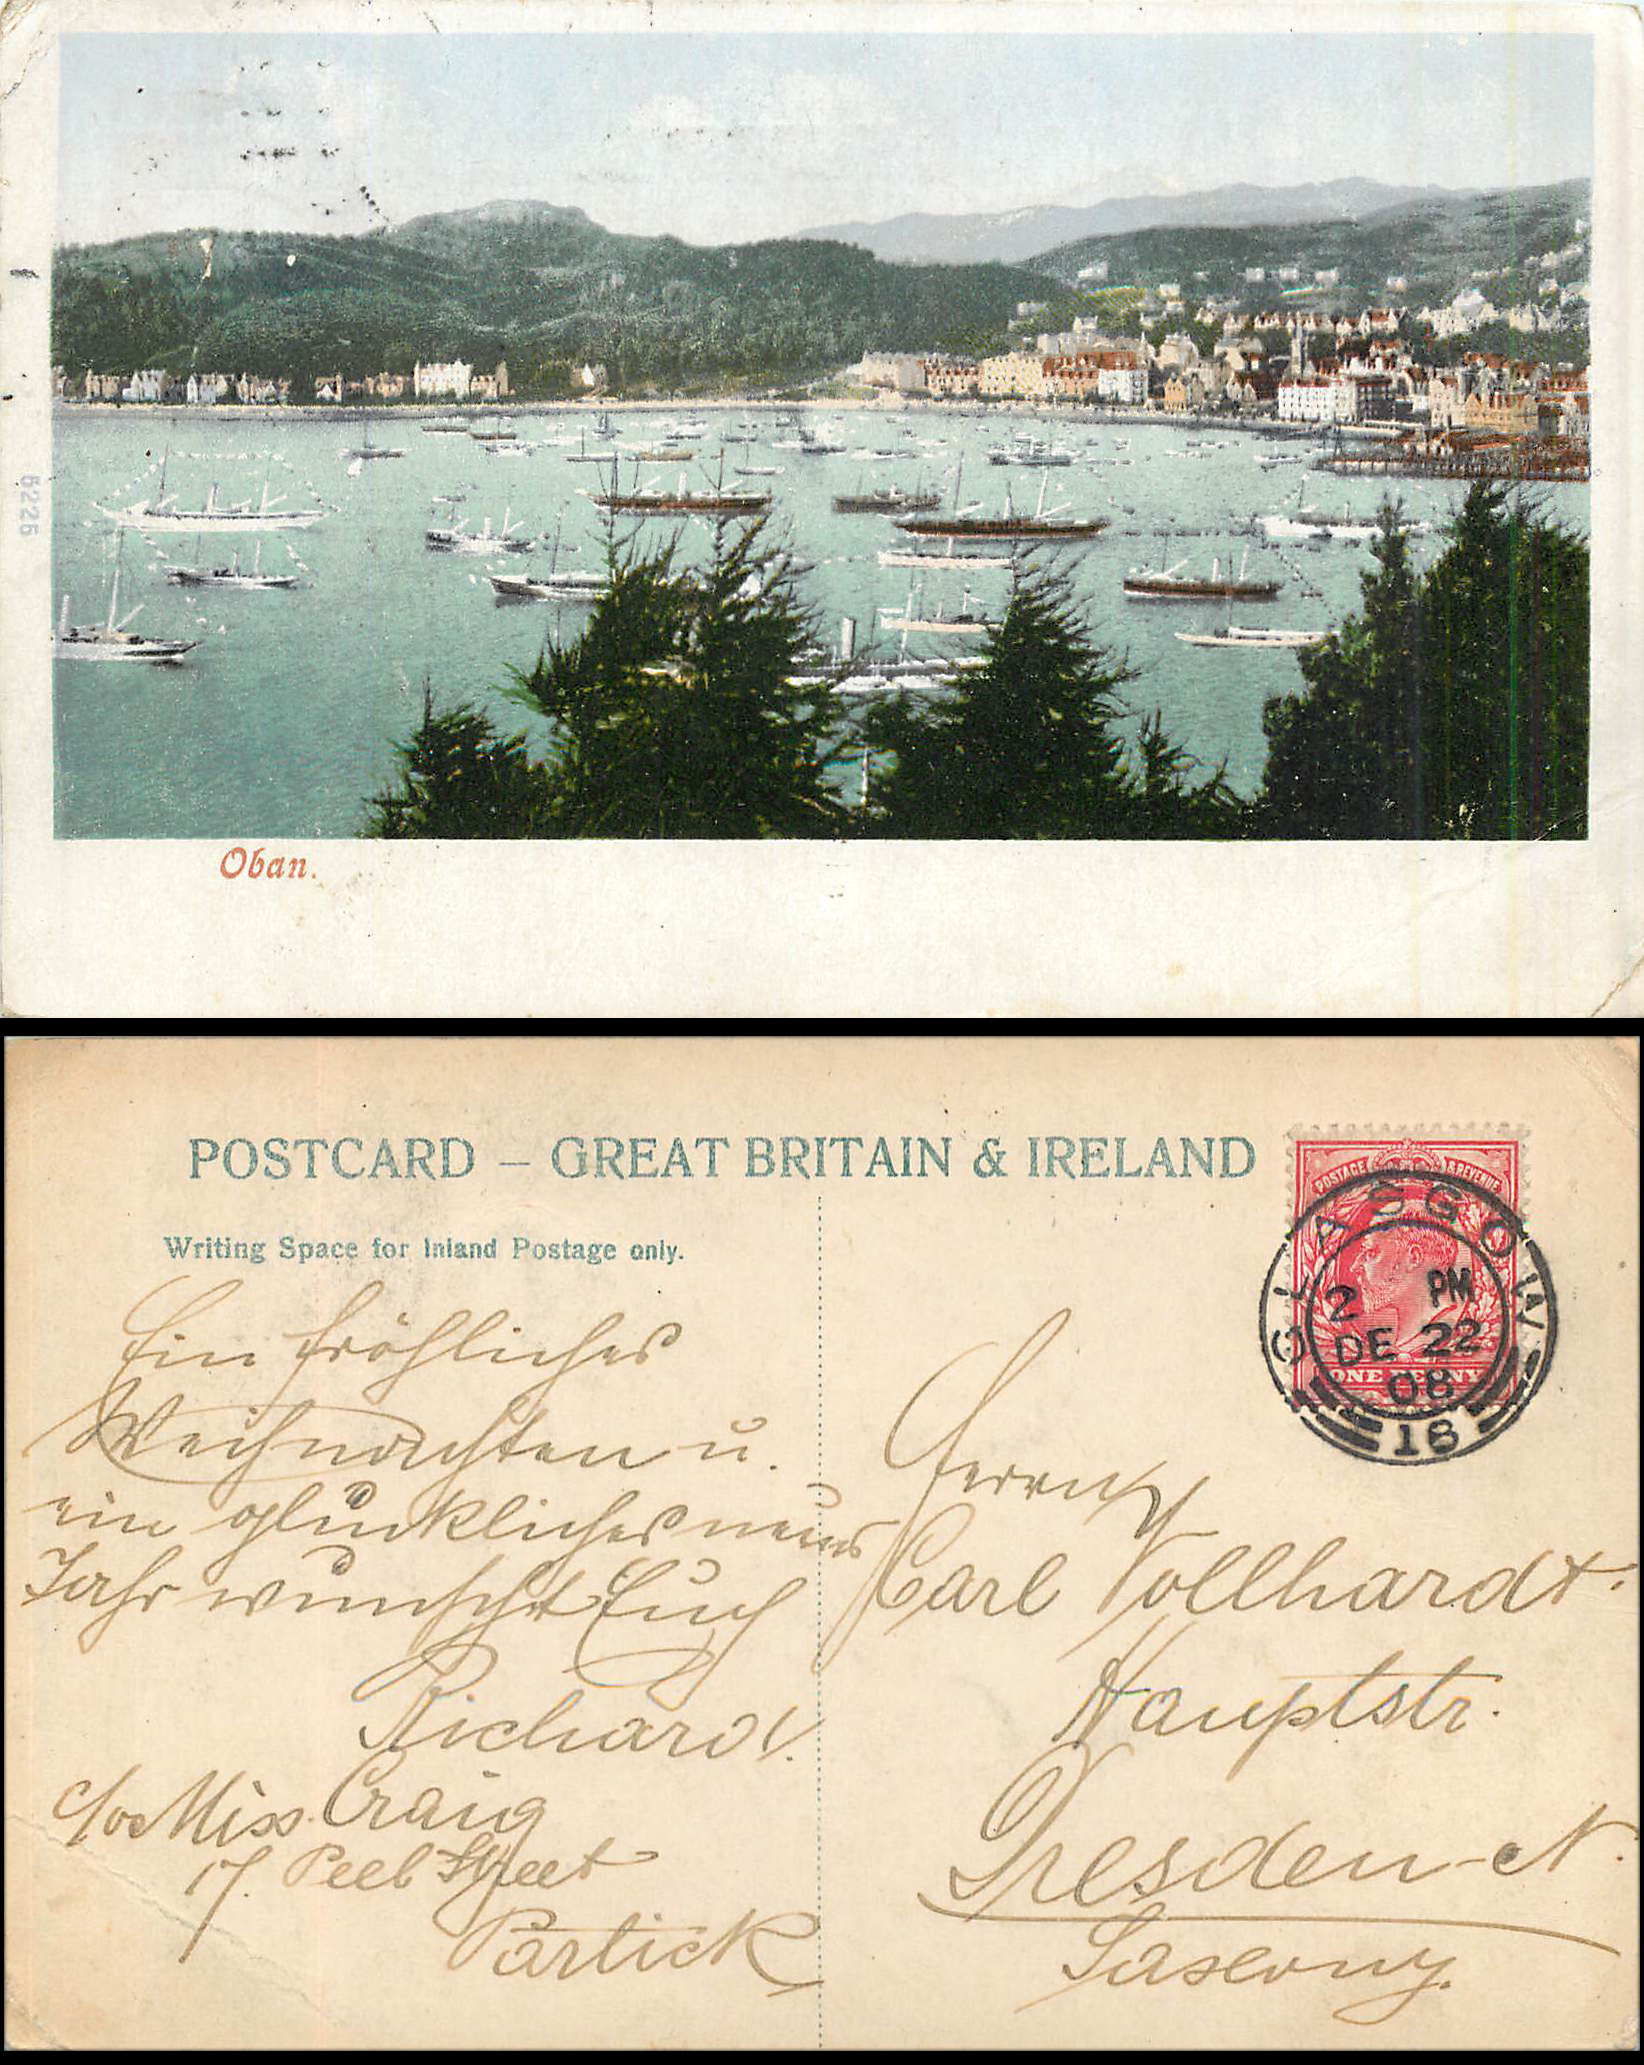 6226
Oban.
POSTCARD – GREAT BRITAIN & IRELAND
Writing Space for Inland Postage only.
Ein fröhliches
Weihnachten u.
ein glückliches neues
Jahr wünscht Euch
Richard.
c/o Miss. Craig
17. Peel Street
Partick
POSTAGE & REVENUE
ONE PENNY
GLASGOW
2 PM
DE 22
08
18
Herrn
Carl Vollhardt.
Hauptstr.
Dresden-N.
Saxony.